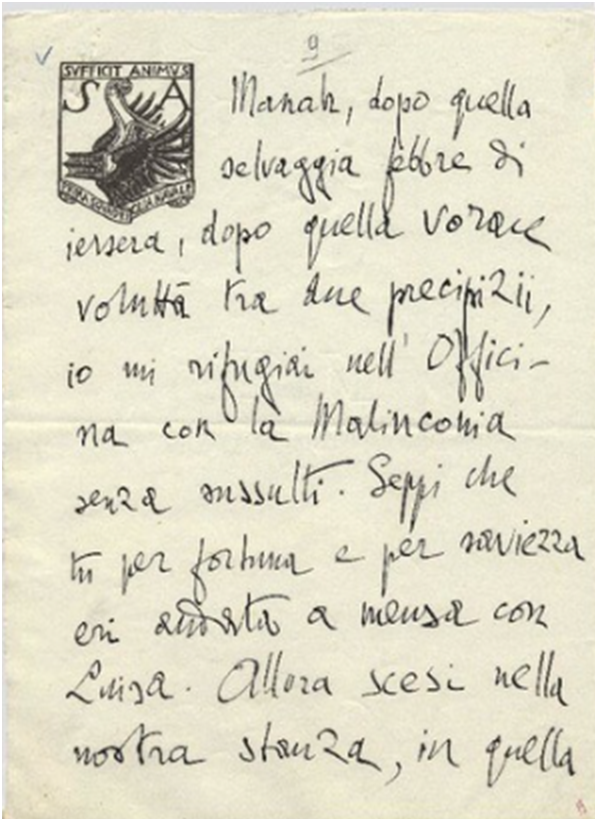 9
SVFFICIT ANIMVS
S A
PRIMA SQVADRIGLIA NAVALE
Manah, dopo quella
selvaggia febbre di
iersera, dopo quella vorace
voluttà tra due precipizii,
io mi rifugiai nell' Offici-
na con la Malinconia
senza sussulti. Seppi che
tu per fortuna e per saviezza
eri andata a mensa con
Luisa. Allora scesi nella
nostra stanza, in quella